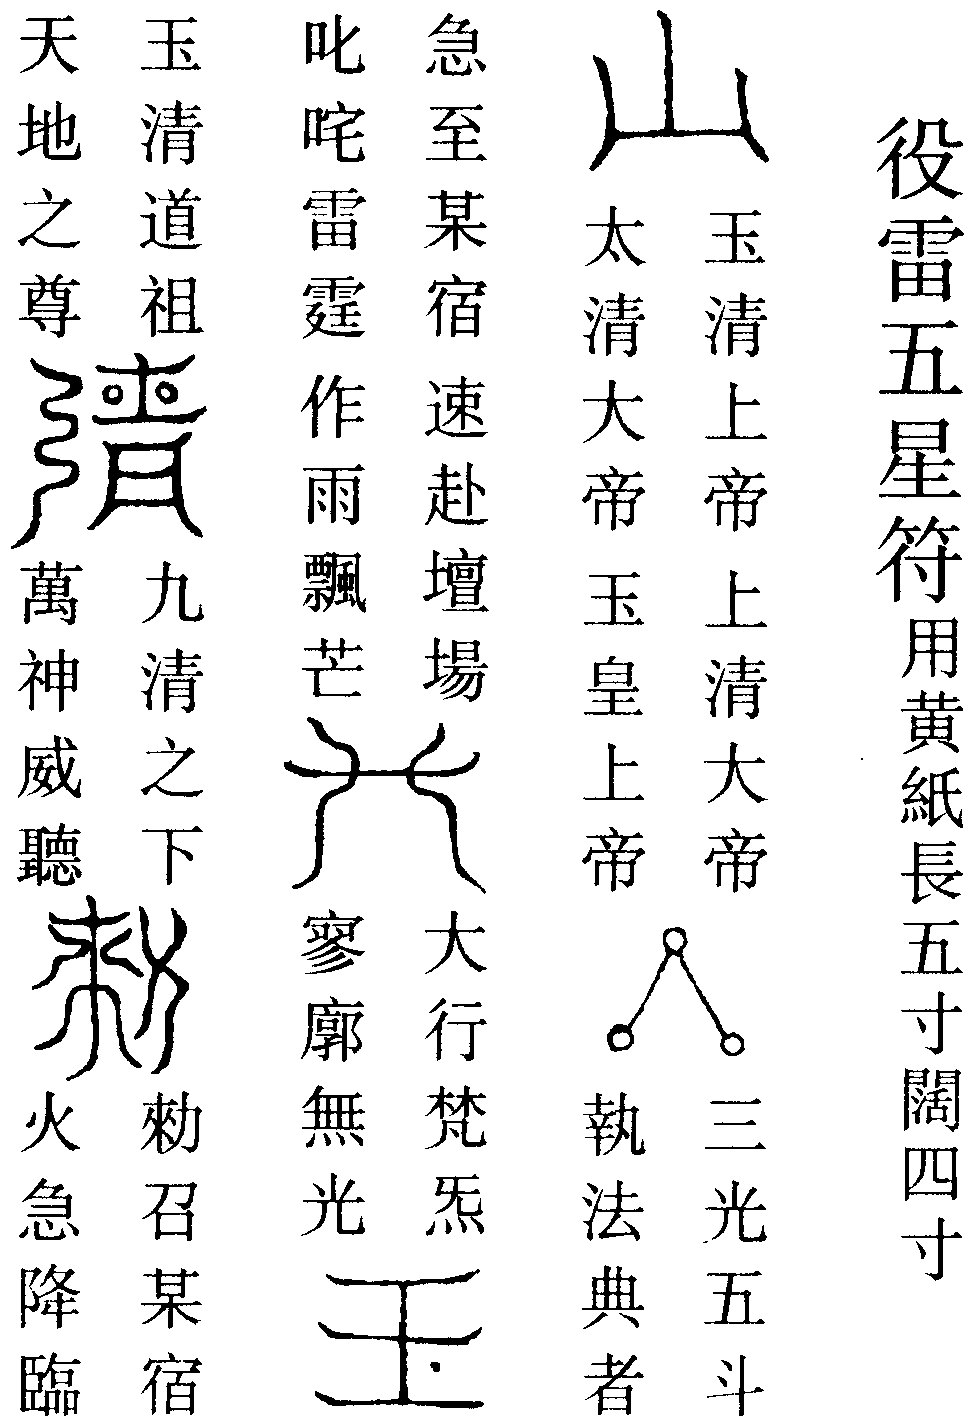 役雷五星符用黄紙長五寸闊四寸
玉清上帝上清大帝
太清大帝玉皇上帝
三光五斗
執法典者
急至某宿速赴壇場
叱咤雷霆作雨飄芒
大行梵炁
寥廓無光
玉清道祖
天地之尊
九清之下
萬神威聽
勑召某宿
火急降臨